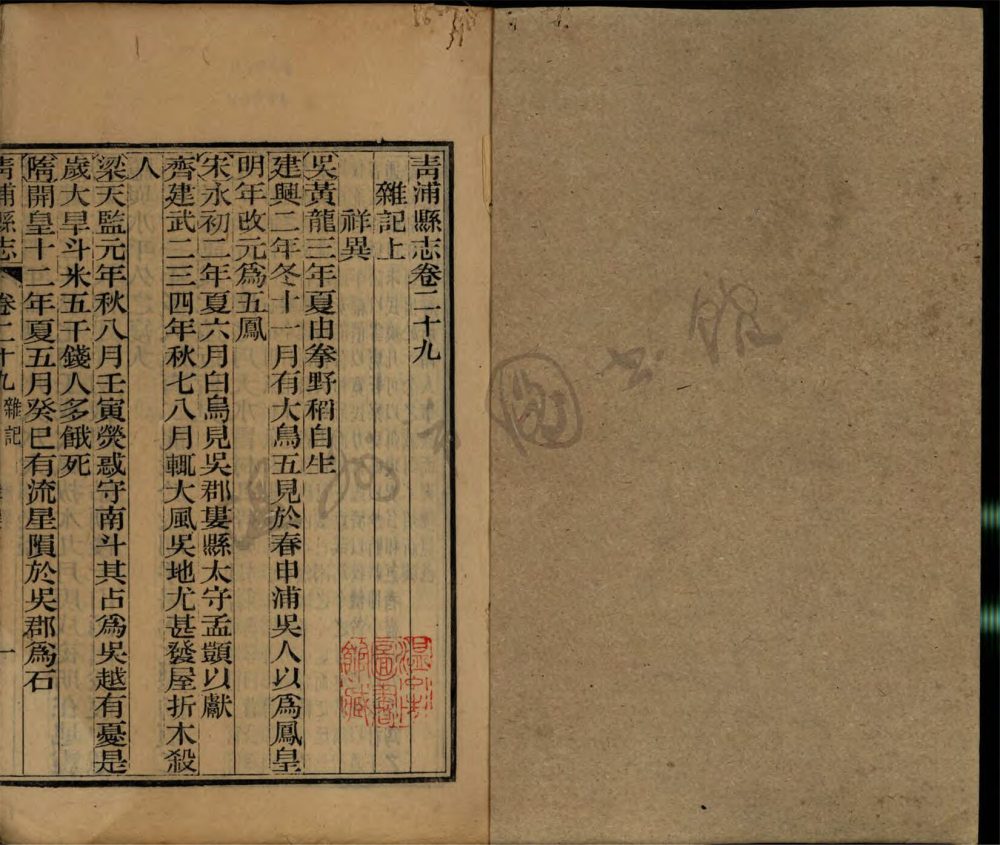 青浦縣志卷二十九
雜記上
祥異
吳黃龍三年夏由拳野稻自生
建興二年冬十一月有大鳥五見於春申浦吳人以爲鳳皇
明年改元爲五鳳
宋永初二年夏六月白烏見吳郡婁縣太守孟顗以獻
齊建武二三四年秋七八月輒大風吳地尤甚發屋折木殺
人
梁天監元年秋八月壬寅熒惑守南斗其占爲吳越有憂是
歲大旱斗米五千錢人多餓死
隋開皇十二年夏五月癸巳有流星隕於吳郡爲石
青浦縣志
卷二十九
雜記
一
圖書館藏